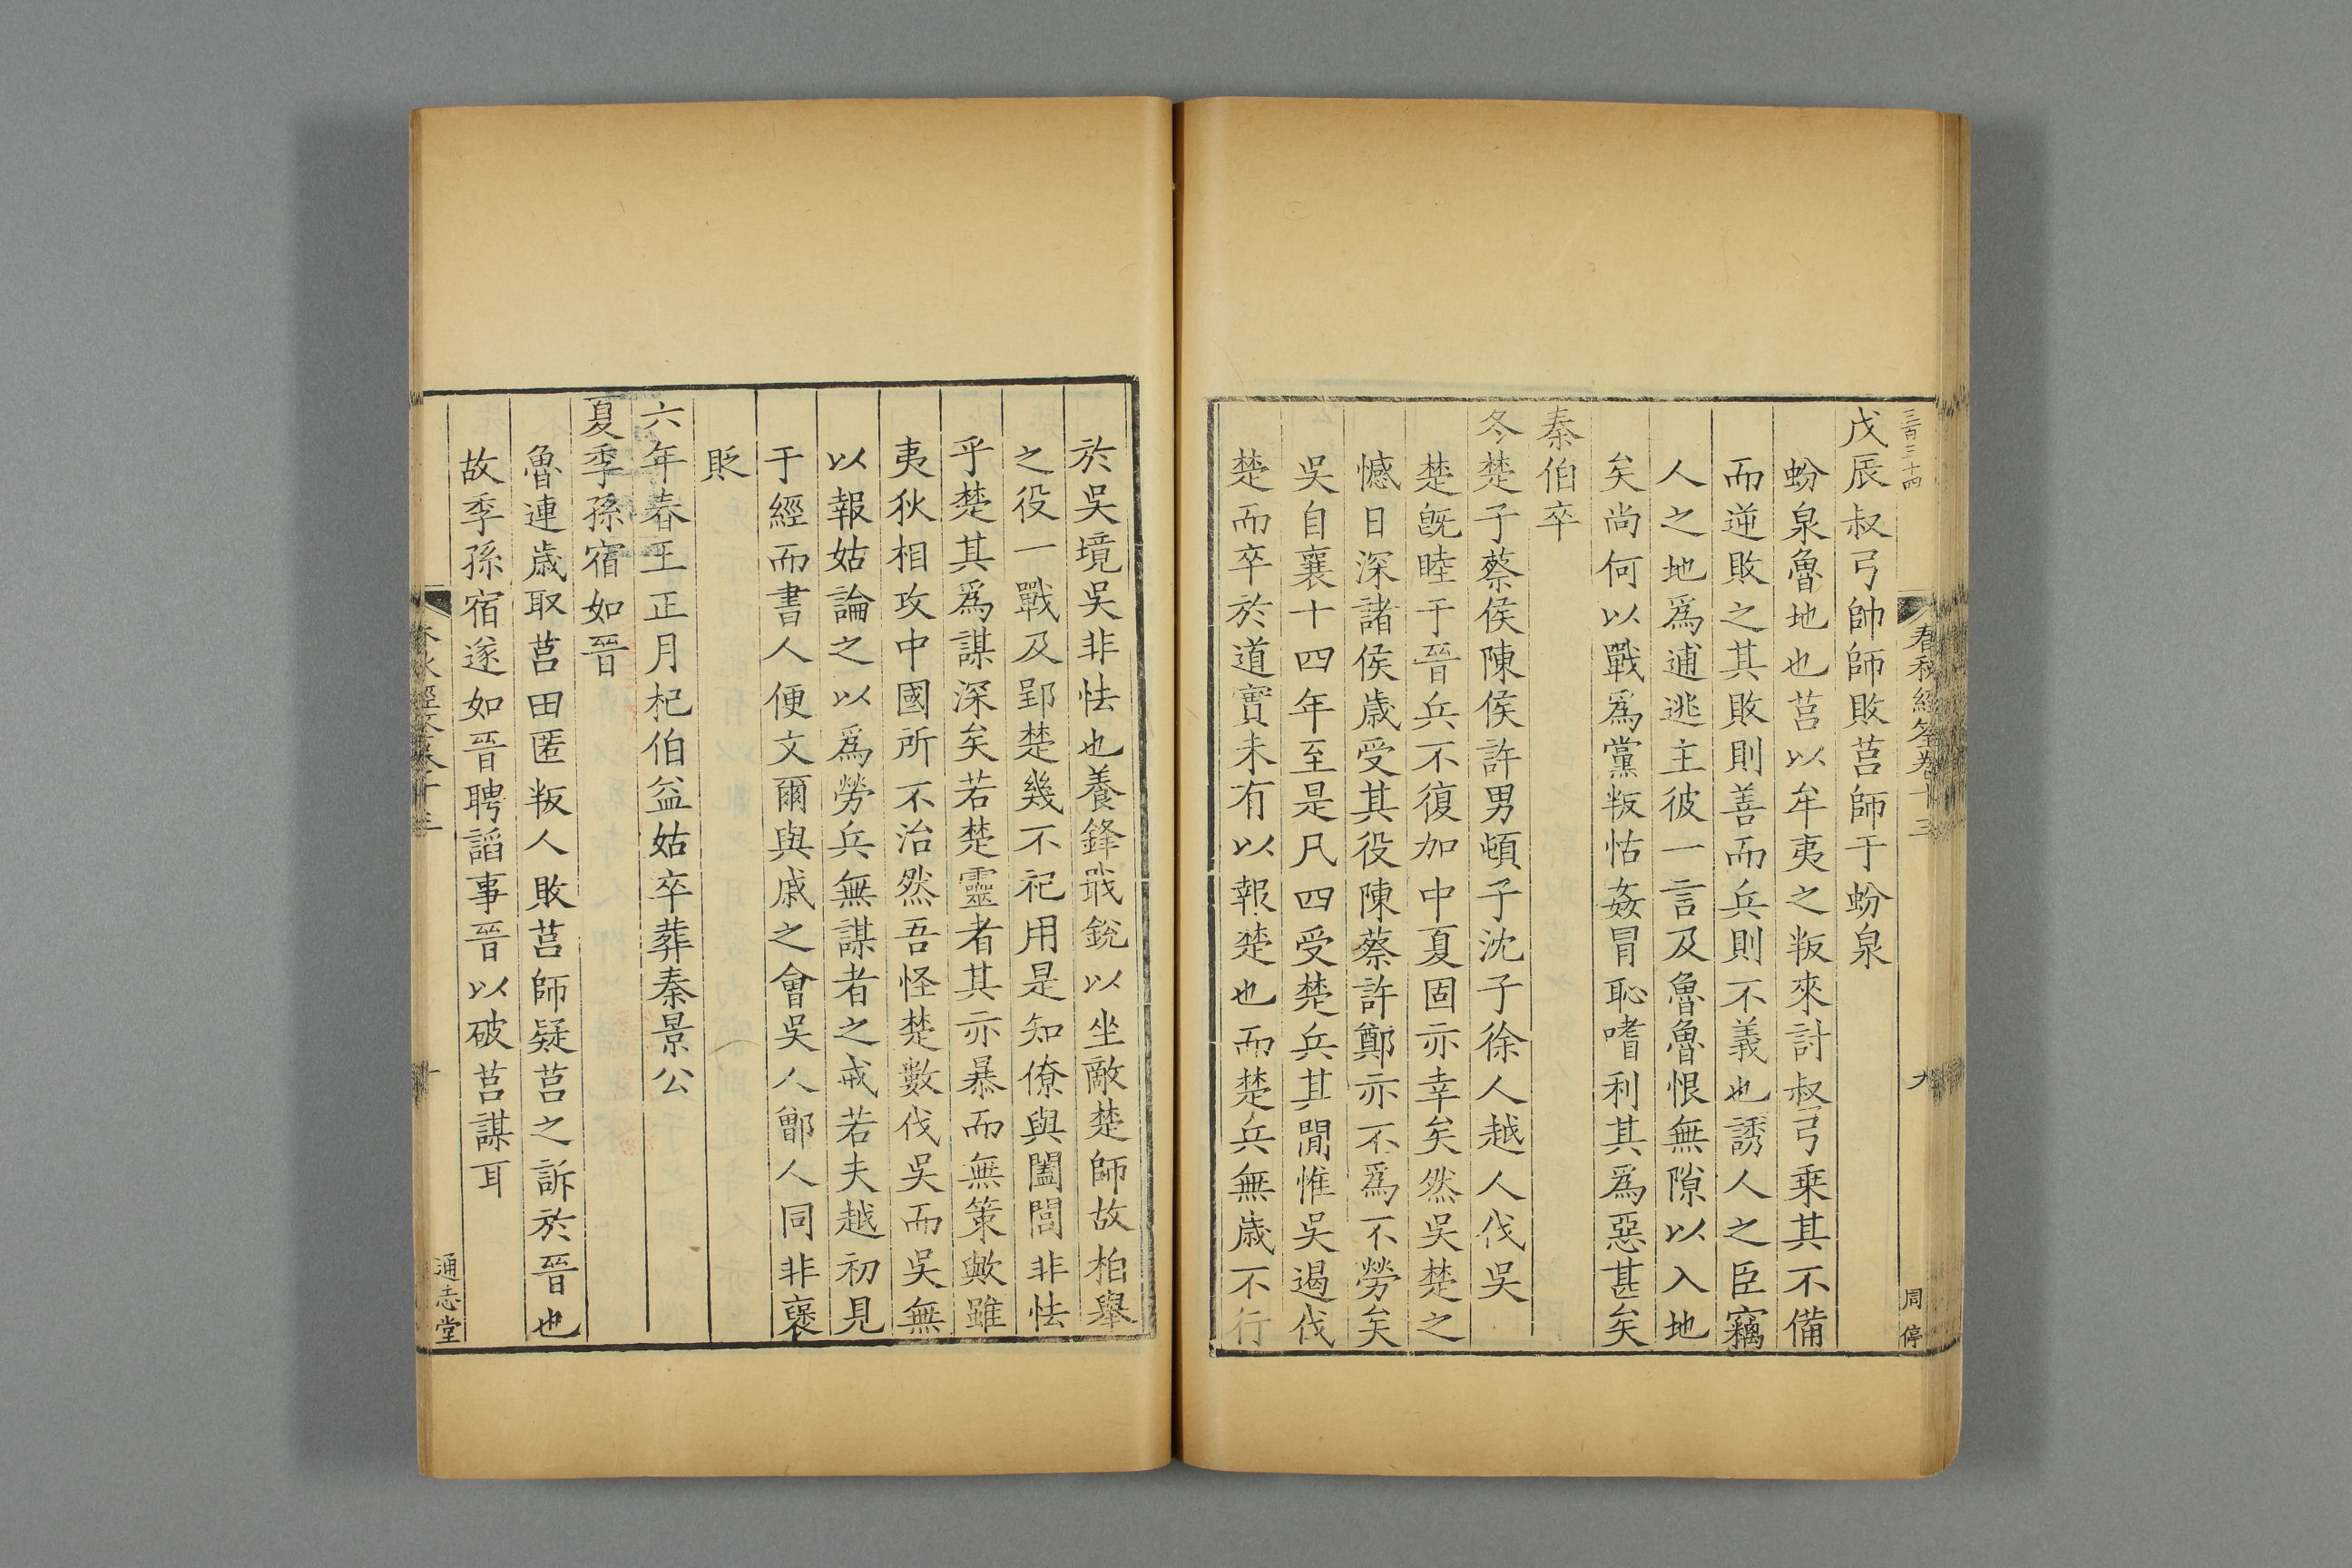 三百三十四
春秋經筌卷十三
九
周停
戊辰叔弓帥師敗莒師于蚡泉
蚡泉魯地也莒以牟夷之叛來討叔弓乗其不備
而逆敗之其敗則善而兵則不義也誘人之臣竊
人之地爲逋逃主彼一言及魯魯恨無隙以入地
矣尚何以戰爲黨叛怙姦冒恥嗜利其爲惡甚矣
秦伯卒
冬楚子蔡侯陳侯許男頓子沈子徐人越人伐吳
楚旣睦于晉兵不復加中夏固亦幸矣然吳楚之
憾日深諸侯歲受其役陳蔡許鄭亦不爲不勞矣
吳自襄十四年至是凡四受楚兵其閒惟吳遏伐
楚而卒於道實未有以報楚也而楚兵無歲不行
於吳境吳非怯也養鋒戢銳以坐敵楚師故柏舉
之役一戰及郢楚幾不祀用是知僚與闔閭非怯
乎楚其爲謀深矣若楚靈者其亦暴而無策歟雖
夷狄相攻中國所不治然吾怪楚數伐吳而吳無
以報姑論之以爲勞兵無謀者之戒若夫越初見
于經而書人便文爾與戚之會吳人鄫人同非襃
貶
六年春王正月杞伯益姑卒葬秦景公
夏季孫宿如晉
魯連歲取莒田匿叛人敗莒師疑莒之訴於晉也
故季孫宿遂如晉聘謟事晉以破莒謀耳
十
通志堂